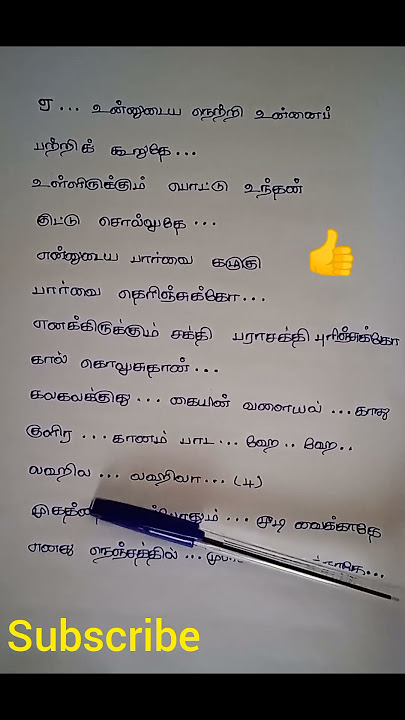 ஏ... உன்னுடைய நெற்றி உன்னைப்
பற்றிக் கூறுதே...
உள்ளிருக்கும் பொட்டு உந்தன்
குட்டு சொல்லுதே...
என்னுடைய பார்வை கழுகு
பார்வை தெரிஞ்சுக்கோ...
எனக்கிருக்கும் சக்தி பராசக்தி புரிஞ்சுக்கோ
கால் கொலுசுதான்...
கலகலக்குது... கையின் வளையல்... காது
குளிர... கானம் பாட... ஹே.. ஹே..
லஹில... லஹிலா... (4)
... மூடி வைக்காதே
எனது நெஞ்சத்தில்...
Subscribe